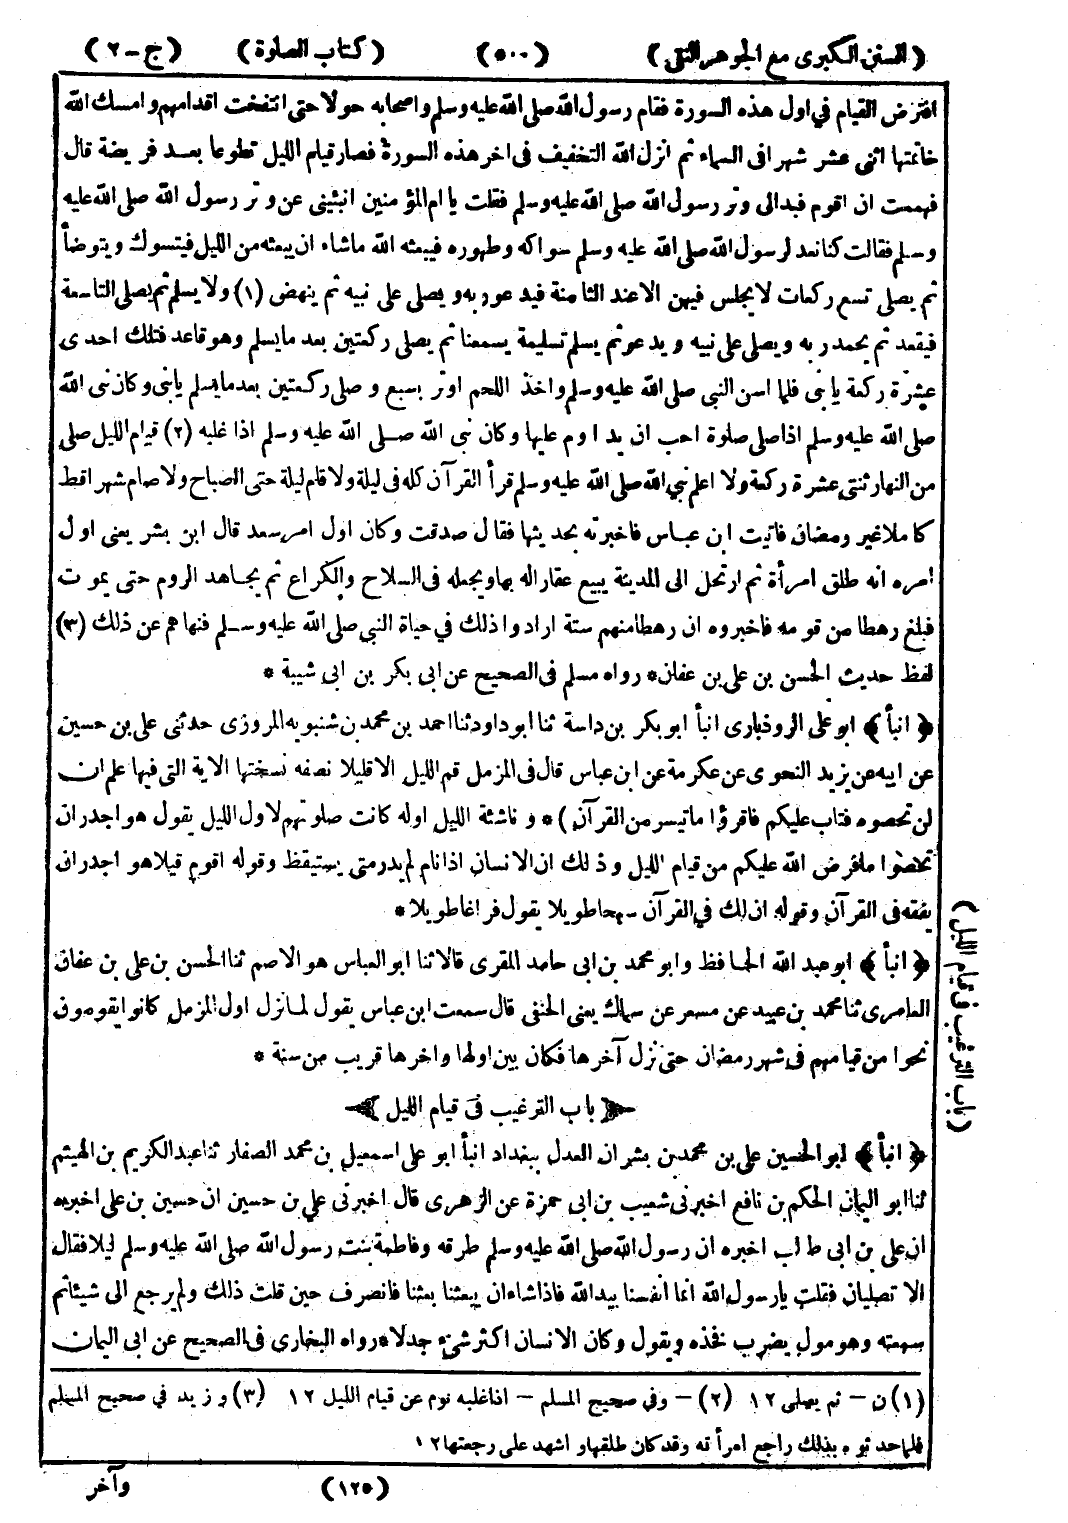 (السنن الكبرى مع الجوهر النقى) (٥٠٠) (كتاب الصلوة) (ج-٢)
افترض القيام في اول هذه السورة فقام رسول الله صلى الله عليه وسلم واصحابه حولا حتى انتفخت اقدامهم وامسك الله
خاتمتها اثنى عشر شهرا فى السماء ثم انزل الله التخفيف فى اخر هذه السورة فصار قيام الليل تطوعا بعد فريضة قال
فهممت ان اقوم فبدالى وتر رسول الله صلى الله عليه وسلم فقلت يا ام المؤمنين انبئينى عن وتر رسول الله صلى الله عليه
وسلم فقالت كنا نعد لرسول الله صلى الله عليه وسلم سواكه وطهوره فيبعثه الله ماشاء ان يبعثه من الليل فيتسوك ويتوضأ
ثم يصلى تسع ركعات لا يجلس فيهن الا عند الثامنة فيدعو ربه ويصلى على نبيه ثم ينهض (١) ولا يسلم ثم يصلى التاسعة
فيقعد ثم يحمد ربه ويصلى على نبيه ويدعو ثم يسلم تسليمة يسمعنا ثم يصلى ركعتين بعد ما يسلم وهو قاعد فتلك احدى
عشرة ركعة يا بنى فلما اسن النبى صلى الله عليه وسلم واخذ اللحم اوتر بسبع وصلى ركعتين بعد ما يسلم يا بنى وكان نبى الله
صلى الله عليه وسلم اذا صلى صلوة احب ان يداوم عليها وكان نبى الله صلى الله عليه وسلم اذا غلبه (٢) قيام الليل صلى
من النهار ثنتى عشرة ركعة ولا اعلم نبي الله صلى الله عليه وسلم قرأ القرآن كله فى ليلة ولا قام ليلة حتى الصباح ولا صام شهرا قط
كاملا غير رمضان فاتيت ابن عباس فاخبرته بحديثها فقال صدقت وكان اول امر سعد قال ابن بشر يعنى اول
امره انه طلق امرأة ثم ارتحل الى المدينة يبيع عقارا له بها ويجعله فى السلاح والكراع ثم يجاهد الروم حتى يموت
فبلغ رهطا من قومه فاخبروه ان رهطا منهم ستة ارادوا ذلك في حياة النبي صلى الله عليه وسلم فنهاهم عن ذلك (٣)
لفظ حديث الحسن بن على بن عفان* رواه مسلم فى الصحيح عن ابى بكر بن ابى شيبة *
﴿ انبأ ﴾ ابو على الروذبارى انبأ ابو بكر بن داسة ثنا ابو داود ثنا احمد بن محمد بن شنبويه المروزى حدثنى على بن حسين
عن ابيه عن يزيد النحوى عن عكرمة عن ابن عباس قال فى المزمل قم الليل الا قليلا نصفه نسختها الاية التى فيها علم ان
لن تحصوه فتاب عليكم فاقرؤا ما تيسر من القرآن )* وناشئة الليل اوله كانت صلوتهم لاول الليل يقول هو اجدر ان
تحصوا ما فرض الله عليكم من قيام الليل وذلك ان الانسان اذا نام لم يدر متى يستيقظ وقوله اقوم قيلا هو اجدر ان
يفقه فى القرآن وقوله ان لك في القرآن سبحا طويلا يقول فراغا طويلا*
﴿ انبأ ﴾ ابو عبد الله الحافظ وابو محمد بن ابى حامد المقرى قالا ثنا ابو العباس هو الاصم ثنا الحسن بن على بن عفان
العامرى ثنا محمد بن عبيد عن مسعر عن سماك يعنى الحنفى قال سمعت ابن عباس يقول لما نزل اول المزمل كانوا يقومون
نحوا من قيامهم فى شهر رمضان حتى نزل آخرها فكان بين اولها واخرها قريب من سنة *
باب الترغيب فى قيام الليل
﴿ انبأ ﴾ ابو الحسين على بن محمد بن بشران العدل ببغداد انبأ ابو على اسمعيل بن محمد الصفار ثنا عبد الكريم بن الهيثم
ثنا ابو اليمان الحكم بن نافع اخبرنى شعيب بن ابى حمزة عن الزهرى قال اخبرنى على بن حسين ان حسين بن على اخبره
ان على بن ابى طالب اخبره ان رسول الله صلى الله عليه وسلم طرقه وفاطمة بنت رسول الله صلى الله عليه وسلم ليلا فقال
الا تصليان فقلت يا رسول الله انما أنفسنا بيد الله فاذا شاء ان يبعثنا بعثنا فانصرف حين قلت ذلك ولم يرجع الى شيئا ثم
سمعته وهو مول يضرب فخذه ويقول وكان الانسان اكثر شئ جدلا* رواه البخارى فى الصحيح عن ابى اليمان
(باب الترغيب فى قيام الليل)
(١) ن - ثم يصلى ١٢ (٢) - وفي صحيح المسلم - اذا غلبه نوم عن قيام الليل ١٢ (٣) وزيد في صحيح المسلم
فلما حدثوه بذلك راجع امرأته وقد كان طلقها واشهد على رجعتها ١٢
(١٢٥) وآخر